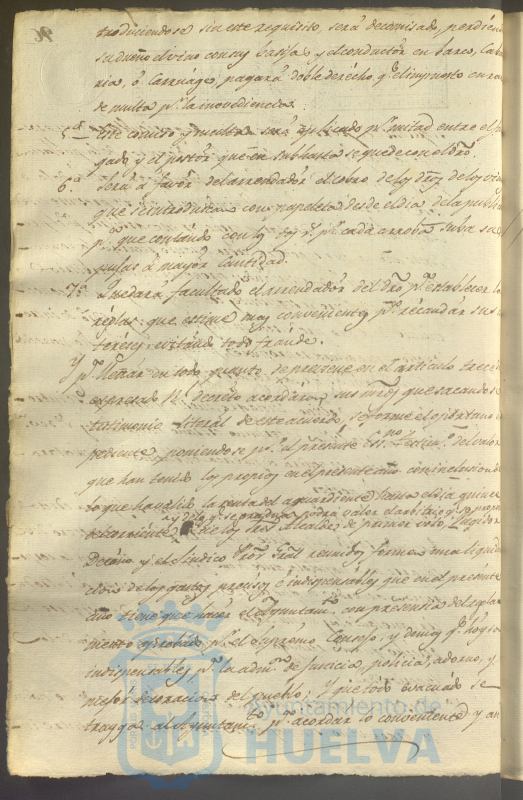 troduciendose sin este requisito, será decomisado, perdiendo
su dueño el vino con sus basijas y el conductor en barco, Caba
ria, ó Carruage, pagará doble derecho, q.e el impuesto en ra
de multa p.r la inovediencia.
5.a Este comiso y multa será aplicado p.r mitad entre el Juz
gado, y el postor que en subhasta se quede con el dro.
6.a Será á favor del arrendador el cobro de los dros. de los vinos
que se introduzcan con papeleta desde el dia de la publica
p.a que contando con los q.s p.r cada arroba suba sus
pujas á mayor Cantidad.
7.a Quedará facultado el arrendador del dro. p.a establecer las
reglas que estime mas convenientes p.a recaudar sus in
tereses, evitando todo fraude.
Y p.a llenar en todo punto de prevenirse en el articulo trece del
expresado Rl. decreto acordaron sus mrds. que sacandose
testimonio literal de este acuerdo, se forme el oportuno ex
pediente, poniendose p.r el presente Ess.no Certificn. del valor
que han tenido los propios en el presente año con inclusion de
lo que ha valido la renta del aguardiente hasta el dia quince
del corriente, y de los Sres. Alcaldes de primer voto, Regidor
Decano, y el Sindico Pror. Gral. reunidos formen una liquida
cion de los gastos precisos é indispensables que en el presente
año tiene que hacer el Ayuntam.to con presencia del regla
mento aprobado p.r el Supremo Consejo, y demas q.e hoy son
indispensables p.a la adm.on de Justicia, policia, adorno, y
mejor decoracion del pueblo; Y que todo evacuado se
trayga al Ayuntam.to p.a acordar lo conveniente y an
Ayuntamiento de
HUELVA